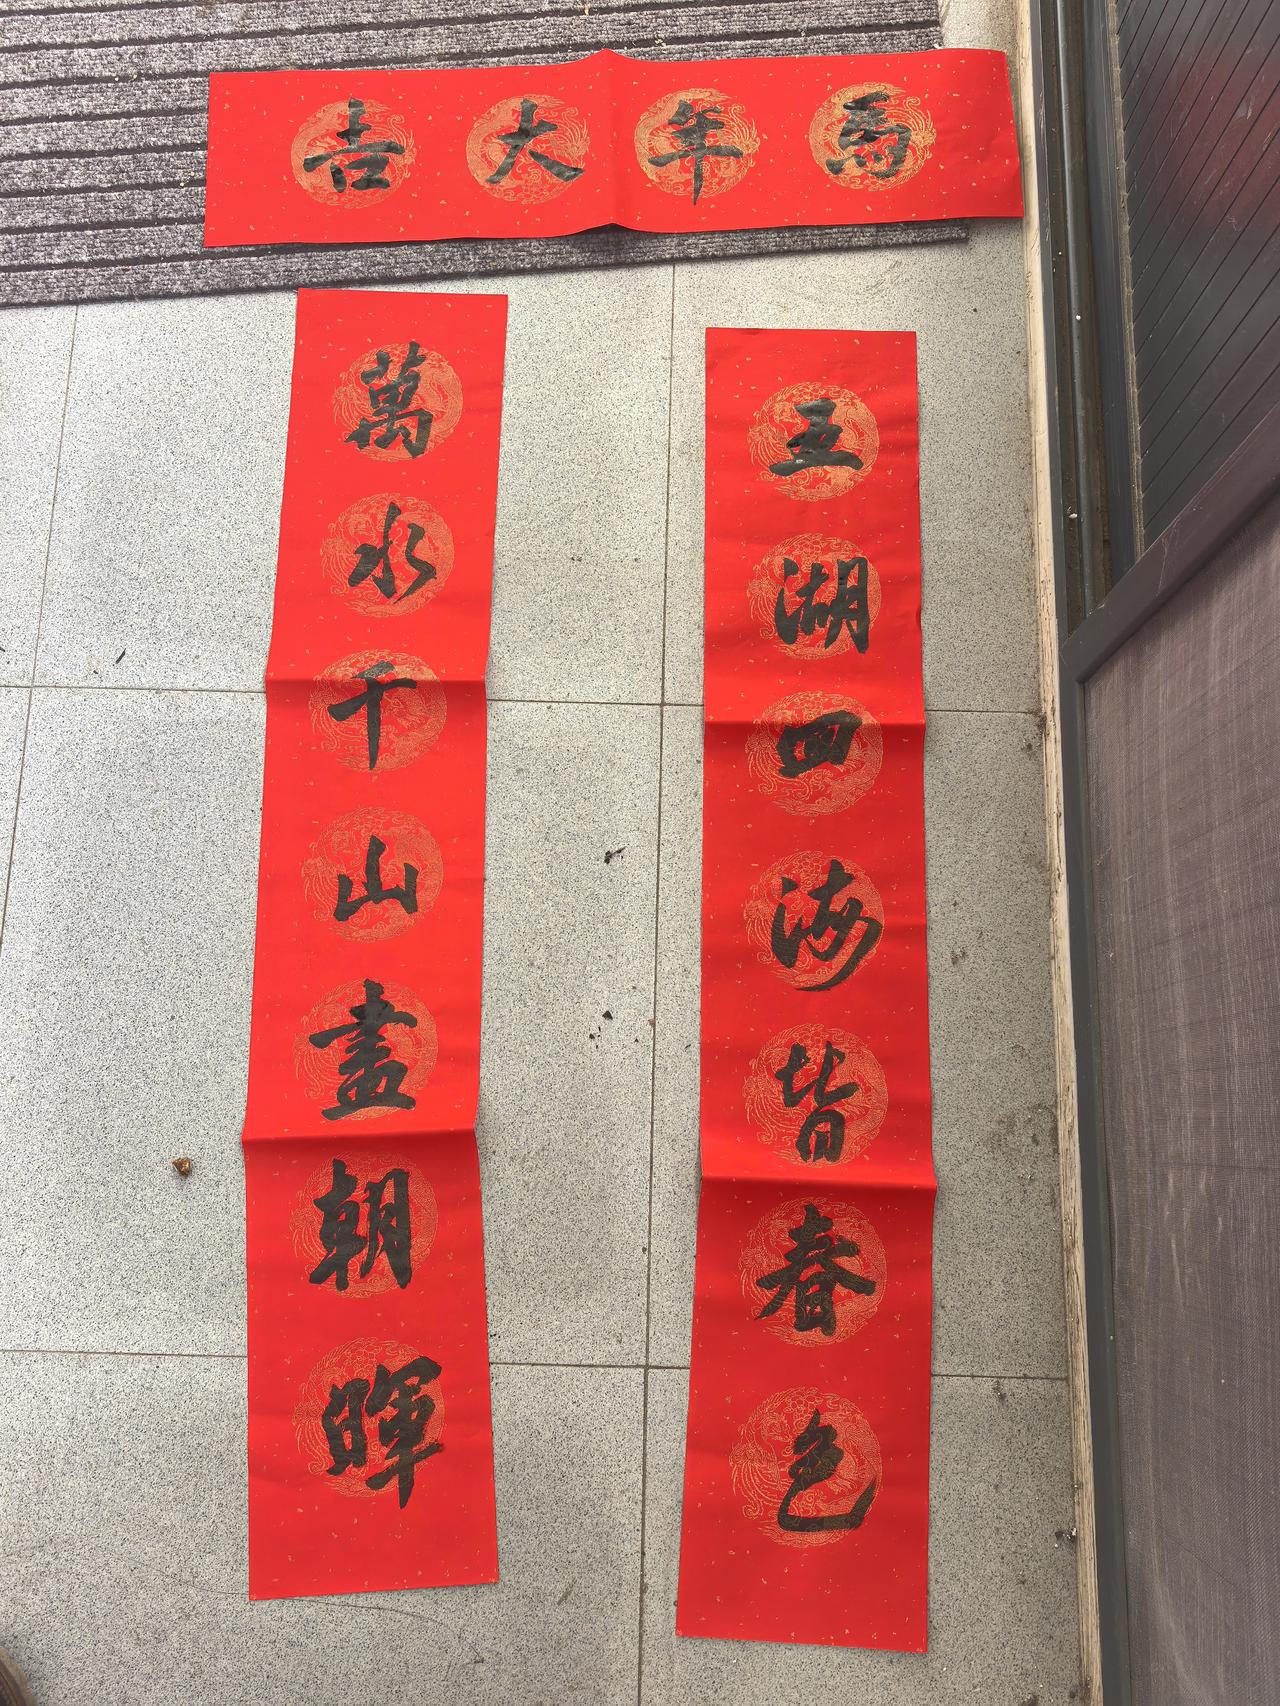 馬年大吉
五湖四海皆春色
萬水千山盡朝暉